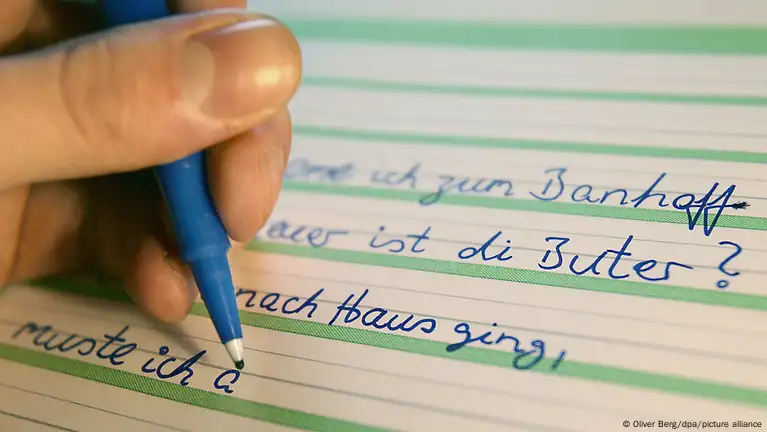 ich zum Banhoff
ist di Buter?
nach Haus ging,
muste ich a
© Oliver Berg/dpa/picture alliance